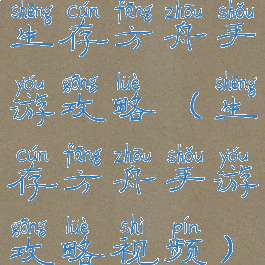 shēng cún fāng zhōu shǒu
生存方舟手
yóu gōng lüè shēng
游攻略（生
cún fāng zhōu shǒu yóu
存方舟手游
gōng lüè shì pín
攻略视频）